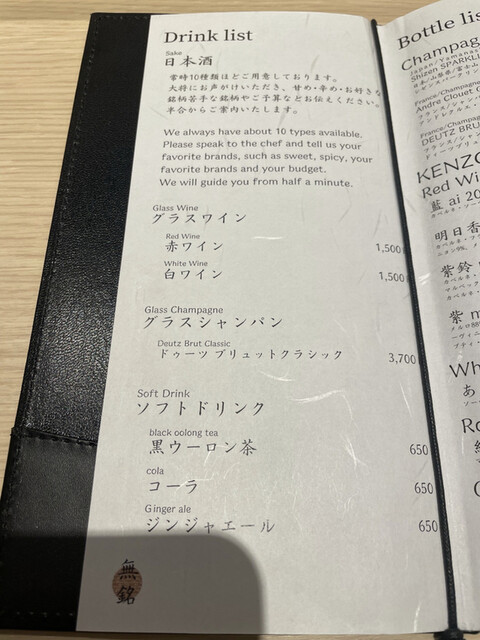 Drink list
Sake
日本酒
常時10種類ほどご用意しております。
大将にお声がけいただき、甘め・辛め・お好きな
銘柄苦手な銘柄やご予算などお伝えください。
半合からご案内いたします。
We always have about 10 types available.
Please speak to the chef and tell us your
favorite brands, such as sweet, spicy, your
favorite brands and your budget.
We will guide you from half a minute.
Glass Wine
グラスワイン
Red Wine
赤ワイン 1,500
White Wine
白ワイン 1,500
Glass Champagne
グラスシャンパン
Deutz Brut Classic
ドゥーツ ブリュットクラシック 3,700
Soft Drink
ソフトドリンク
black oolong tea
黒ウーロン茶 650
cola
コーラ 650
Ginger ale
ジンジャエール 650
無銘
Bottle lis
Champagn
Japan/Yamanas
Shizen SPARKLI
France/Champag
Andre Clouet G
France/Champag
DEUTZ BRU
KENZO
Red Wi
藍 ai 20
明日香
紫鈴
紫 m
Wh
あ
Ro